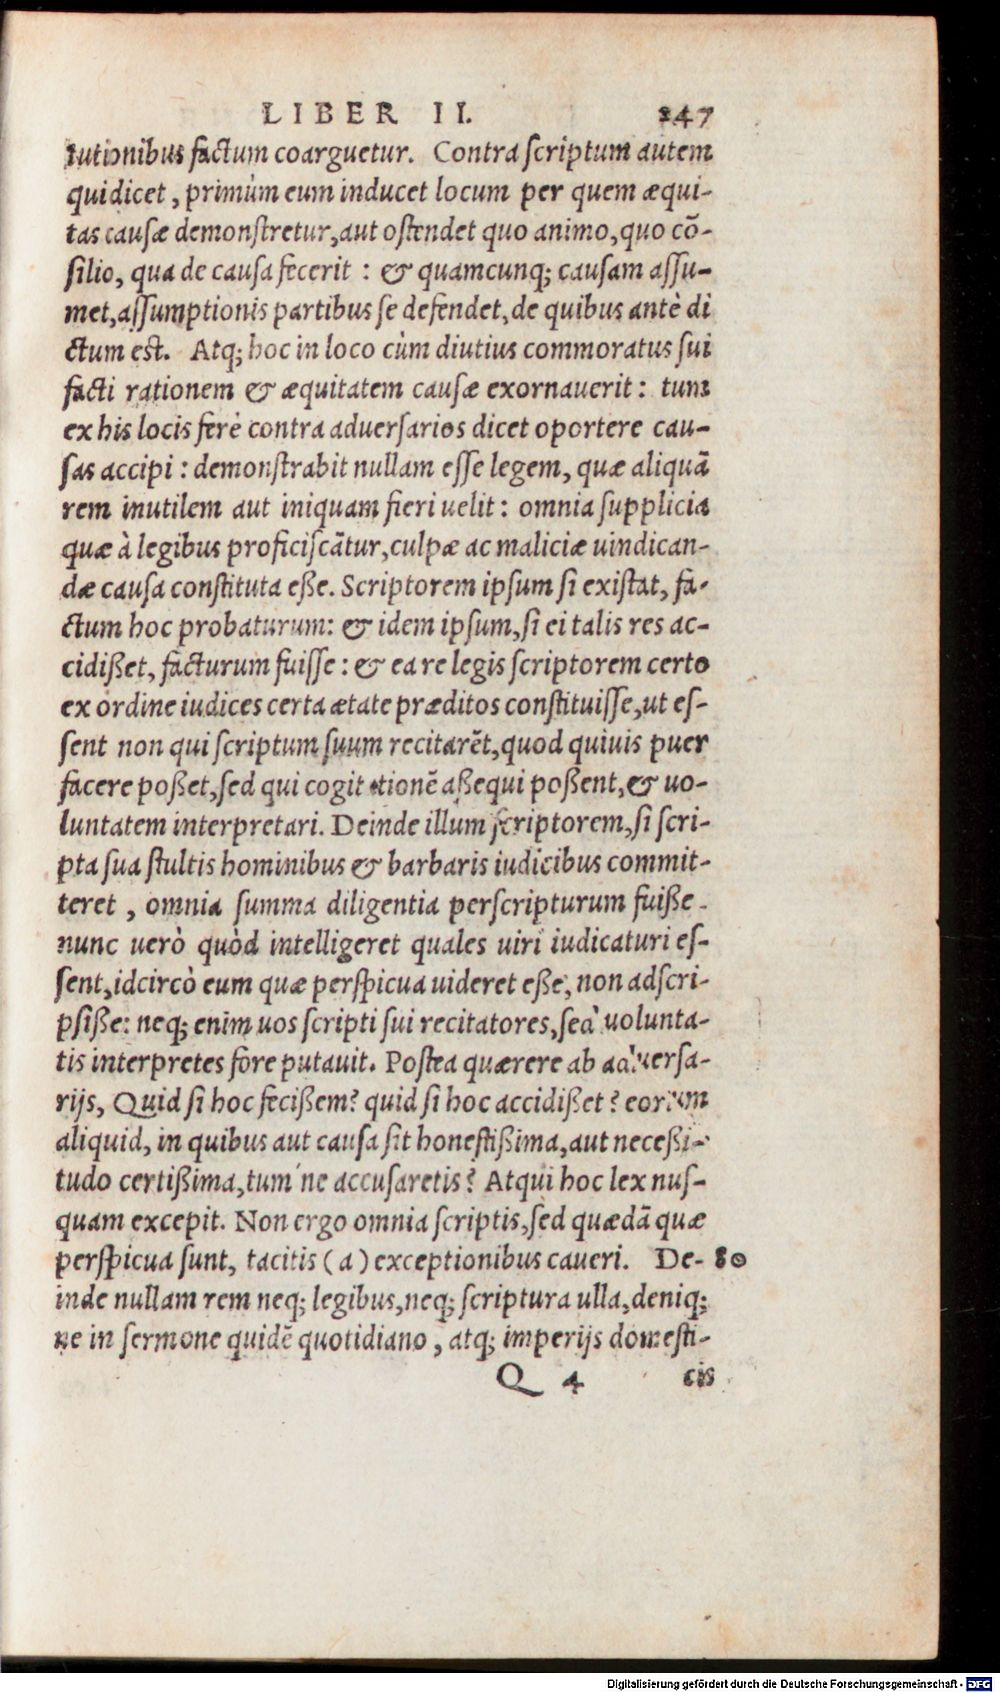 LIBER II. 247
tutionibus factum coarguetur. Contra ſcriptum autem
qui dicet, primùm eum inducet locum per quem æqui-
tas cauſæ demonſtretur, aut oſtendet quo animo, quo cõ-
ſilio, qua de cauſa fecerit : & quamcunq; cauſam aſſu-
met, aſſumptionis partibus ſe defendet, de quibus antè di
ctum eſt. Atq; hoc in loco cùm diutius commoratus ſui
facti rationem & æquitatem cauſæ exornauerit : tum
ex his locis ferè contra aduerſarios dicet oportere cau-
ſas accipi : demonſtrabit nullam eſſe legem, quæ aliquã
rem inutilem aut iniquam fieri uelit : omnia ſupplicia
quæ à legibus proficiſcãtur, culpæ ac maliciæ uindican-
dæ cauſa conſtituta eße. Scriptorem ipſum ſi exiſtat, fa-
ctum hoc probaturum: & idem ipſum, ſi ei talis res ac-
cidißet, facturum fuiſſe : & ea re legis ſcriptorem certo
ex ordine iudices certa ætate præditos conſtituiſſe, ut eſ-
ſent non qui ſcriptum ſuum recitarẽt, quod quiuis puer
facere poßet, ſed qui cogitationẽ aßequi poßent, & uo-
luntatem interpretari. Deinde illum ſcriptorem, ſi ſcri-
pta ſua ſtultis hominibus & barbaris iudicibus commit-
teret , omnia ſumma diligentia perſcripturum fuiße.
nunc uerò quòd intelligeret quales uiri iudicaturi eſ-
ſent, idcircò eum quæ perſpicua uideret eße, non adſcri-
pſiße: neq; enim uos ſcripti ſui recitatores, ſed uolunta-
tis interpretes fore putauit. Poſtea quærere ab aduerſa-
rijs, Quid ſi hoc fecißem? quid ſi hoc accidißet? eorum
aliquid, in quibus aut cauſa ſit honeſtißima, aut neceßi-
tudo certißima, tum ne accuſaretis? Atqui hoc lex nuſ-
quam excepit. Non ergo omnia ſcriptis, ſed quædã quæ
perſpicua ſunt, tacitis (a) exceptionibus caueri. De- 80
inde nullam rem neq; legibus, neq; ſcriptura ulla, deniq;
ne in ſermone quidẽ quotidiano , atq; imperijs domeſti-
Q 4 cis
Digitalisierung gefördert durch die Deutsche Forschungsgemeinschaft - DFG